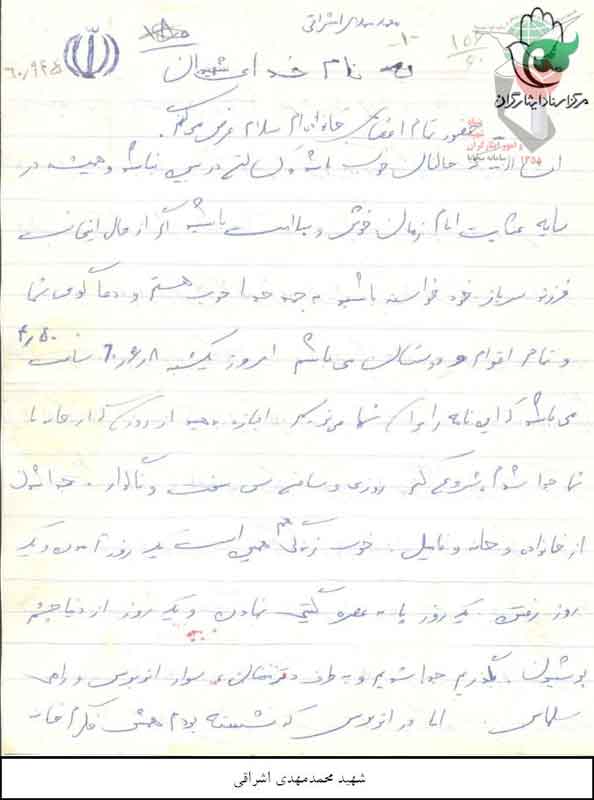 محمدمهدی اشراقی
-۱-
به نام خدای شهیدان
۶۰٫۹۲۵
۱۵۲
۶۰
مرکز اسناد ایثارگران
بنیاد شهید و امور ایثارگران
سامانه سجایا
حضور تمام اعضای خانواده‌ام سلام عرض می‌کنم.
حالتان خوب باشد و کسالتی در بین نباشد و همیشه در
سایه عنایت امام زمان خوش و سلامت باشید اگر از حال اینجانب
فرزند سرباز خود خواسته باشید به حمد خدا خوب هستم و دعاگوی شما
و تمام اقوام و دوستان می‌باشم امروز یکشنبه ۶۰٫۶٫۸ ساعت ۴٫۵۰
می‌باشد که این نامه را برای شما می‌نویسم اجازه بدهید از روزی که از خانه با
شما جدا شدم شروع کنم روزی و ساعتی بس سخت و ناگوار. جدا شدن
از خانواده و خانه و فامیل. خوب زندگی هم همین است یک روز آمدن و یک
روز رفتن یک روز پا به عرصه گیتی نهادن و یک روز از دنیا چشم
پوشیدن. بگذریم جدا شدیم و به طرف سوار اتوبوس و راهی
سلماس. اما در اتوبوس که نشسته بودم همش فکرم خانه
شهید محمدمهدی اشراقی